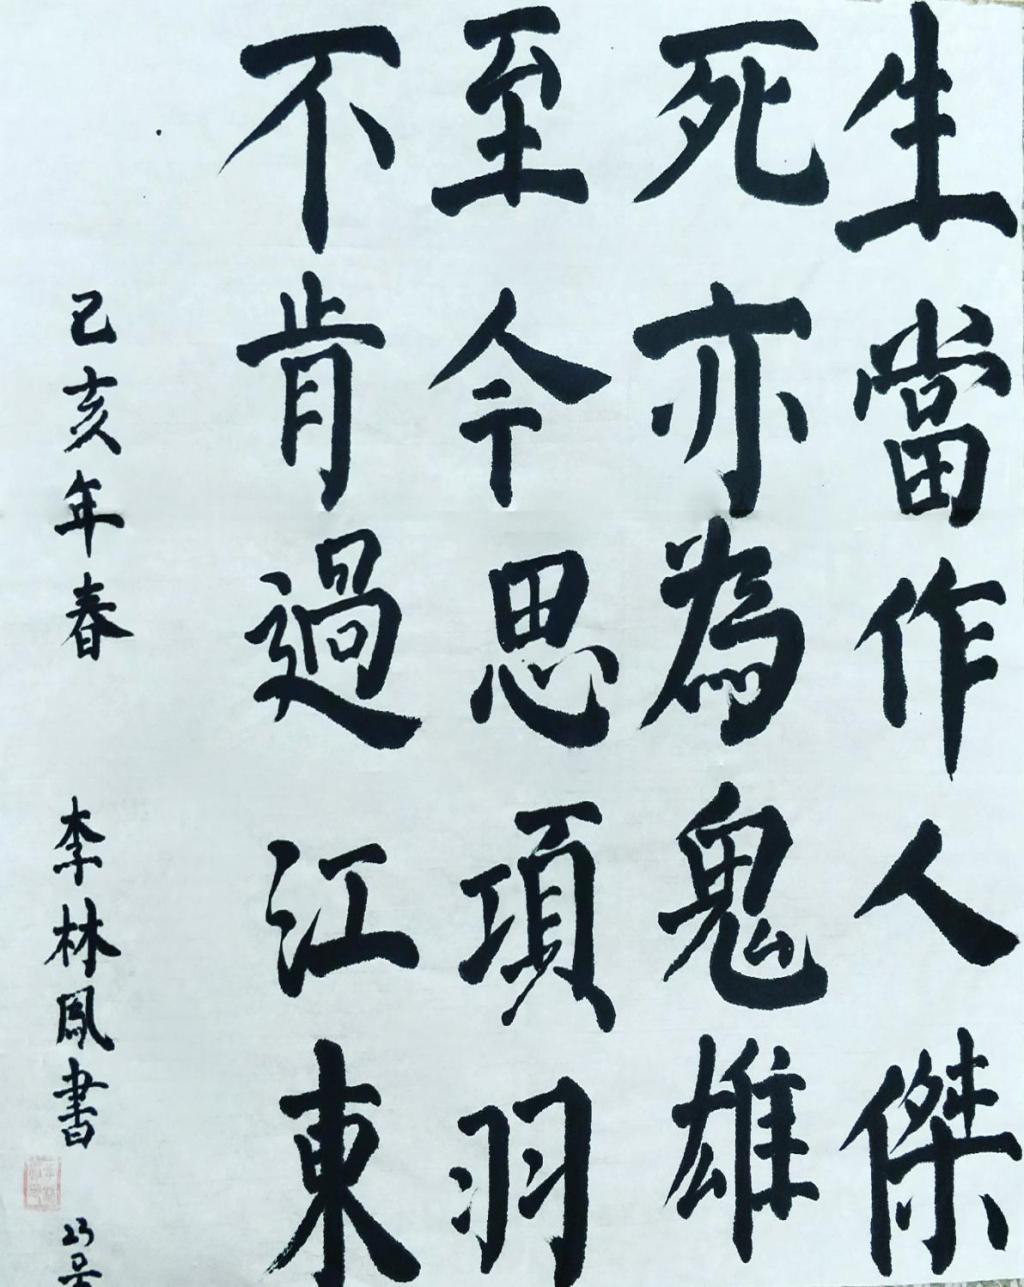 生當作人傑
死亦為鬼雄
至今思項羽
不肯過江東
己亥年春 李林鳳書
23号